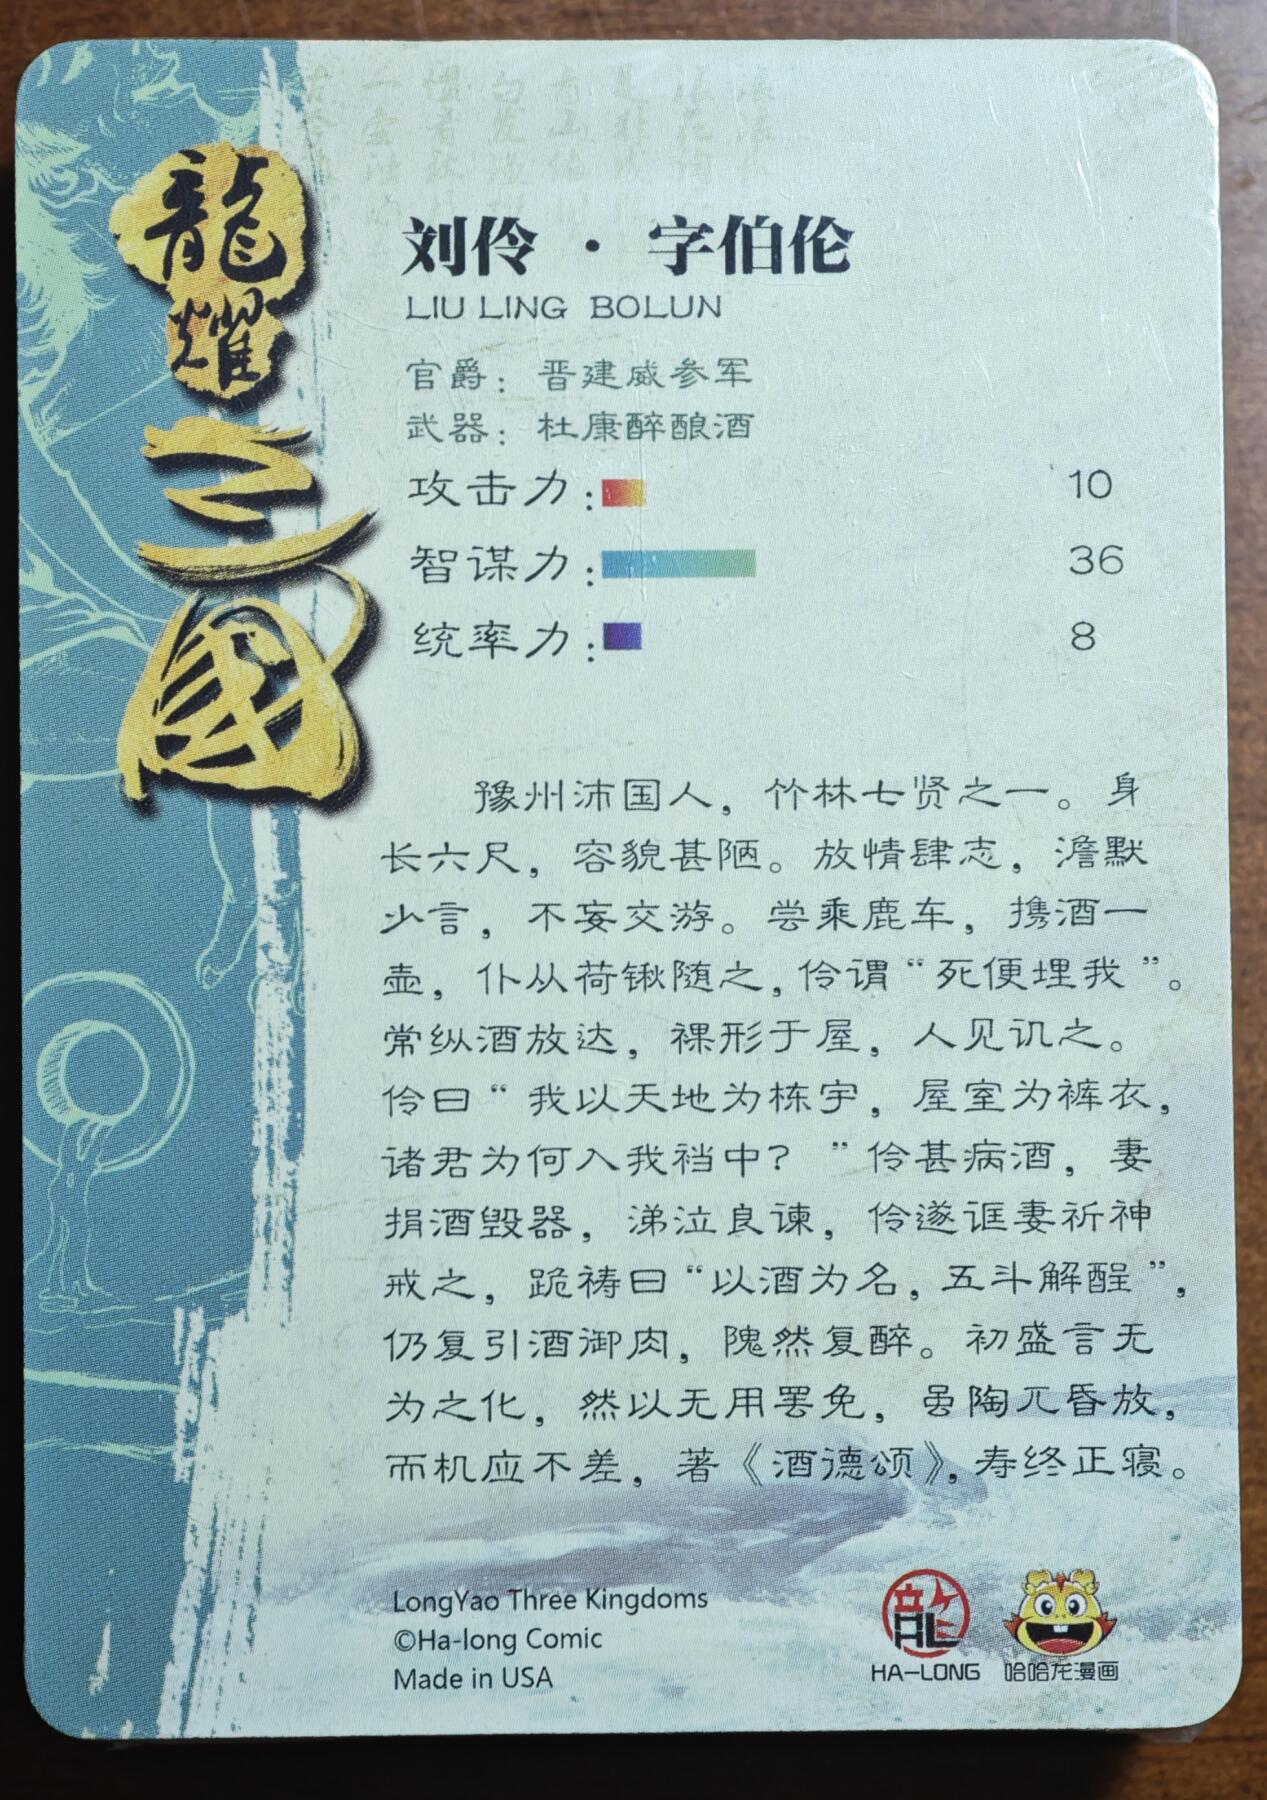 龍耀三國
刘伶·字伯伦
LIU LING BOLUN
官爵：晋建威参军
武器：杜康醉酿酒
攻击力：10
智谋力：36
统率力：8
豫州沛国人，竹林七贤之一。身
长六尺，容貌甚陋。放情肆志，澹默
少言，不妄交游。尝乘鹿车，携酒一
壶，仆从荷锹随之，伶谓“死便埋我”。
常纵酒放达，裸形于屋，人见讥之。
伶曰“我以天地为栋宇，屋室为裤衣，
诸君为何入我裆中？”伶甚病酒，妻
捐酒毁器，涕泣良谏，伶遂诓妻祈神
戒之，跪祷曰“以酒为名，五斗解酲”，
仍复引酒御肉，隗然复醉。初盛言无
为之化，然以无用罢免，虽陶兀昏放，
而机应不差，著《酒德颂》，寿终正寝。
LongYao Three Kingdoms
©Ha-long Comic
Made in USA
HA-LONG
哈哈龙漫画